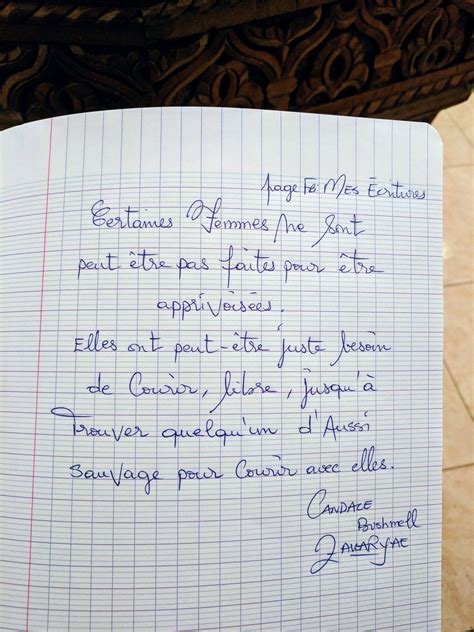 page Fb: Mes Écritures
Certaines Femmes ne sont
peut être pas faites pour être
apprivoisées.
Elles ont peut-être juste besoin
de Courir, libre, jusqu'à
Trouver quelqu'un d'Aussi
Sauvage pour Courir avec elles.
CANDACE
Bushnell
ZAKARYAE